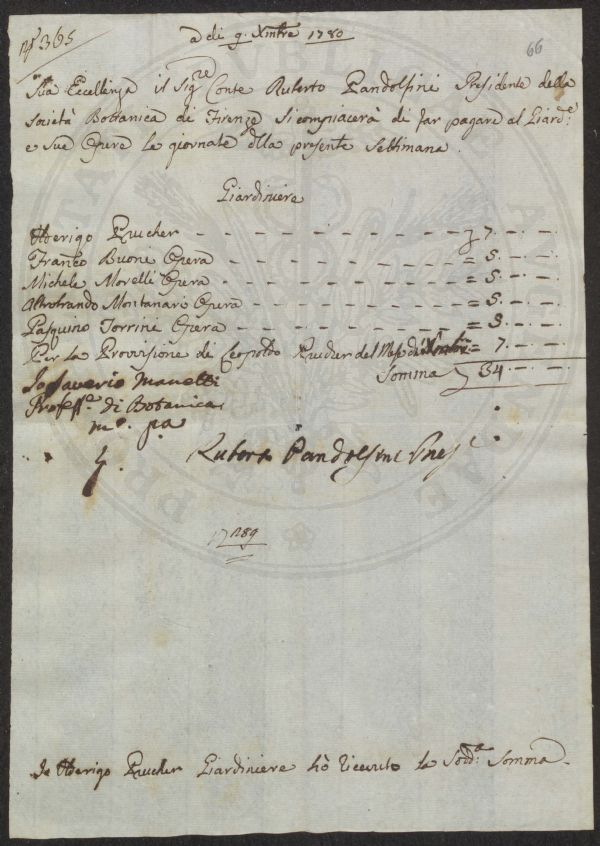 N° 365
a di 9. Xmbre 1780
66
Sua Eccellenza il Sigre Conte Ruberto Pandolfini Presidente della
Società Bottanica di Firenze si compiacerà di far pagare al Giard:e
e sue Opere le giornate dlla presente Settimana.
Giardiniere
Uberigo Prucher - - - - - - - - - - 7. - -
Franco Buoni Opera - - - - - - - - = 5. - -
Michele Morelli Opera - - - - - - - = 5. - -
Montanari Opera - - - - - - - = 5. - -
Pasquino Torrini Opera - - - - - - - = 5. - -
Per la Provisione di Leopoldo Prucher del Mese di = 7. - -
Somma 34 - -
Io Saverio Manetti
Profess.e di Botanica
m.o p.a
Ruberto Pandolfini Pres
1289
Io Uberigo Prucher Giardiniere hò ricevuto la Sodd:a Somma.